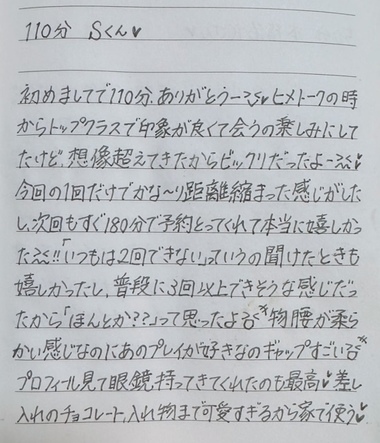 110分 Sくん♥
初めましてで110分、ありがとうー♥ ヒメトークの時
からトップクラスで印象が良くて会うの楽しみにして
たけど、想像超えてきたからビックリだったよー♥
今回の1回だけでかな〜り距離縮まった感じがした
し、次回もすぐ180分で予約とってくれて本当に嬉しかっ
た!!「いつもは2回できない」っていうの聞けたときも
嬉しかったし、普段に3回以上できそうな感じだっ
たから「ほんとか??」って思ったよ 物腰が柔ら
かい感じなのにあのプレイが好きなのギャップすごい
プロフィール見て眼鏡持ってきてくれたのも最高♥ 差し
入れのチョコレート、入れ物まで可愛すぎるから家で使う♥